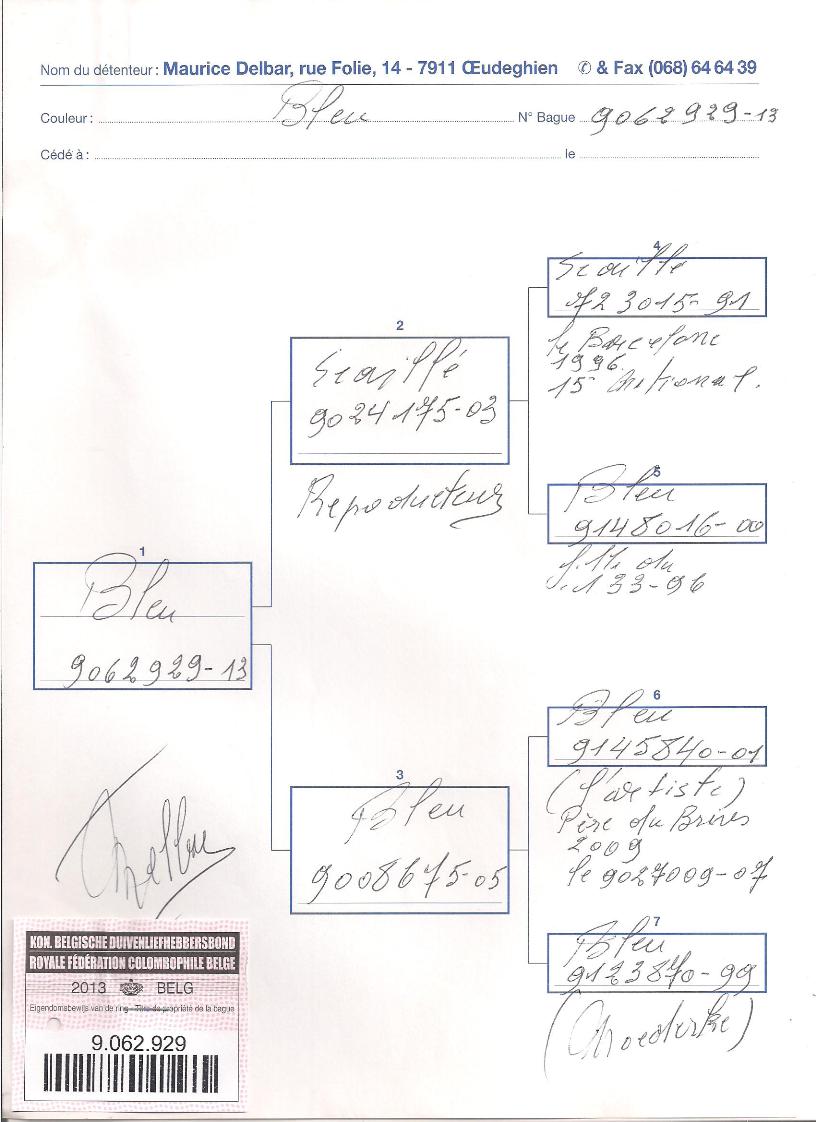 Nom du détenteur : Maurice Delbar, rue Folie, 14 - 7911 Œudeghien ✆ & Fax (068) 64 64 39
Couleur : Bleu N° Bague 9062929-13
Cédé à : le
4
Ecaillé
723015-91
le Barcelone
1996
15e National.
2
Ecaillé
9024175-03
Reproducteur
5
Bleu
9148016-00
fille du
133-96
1
Bleu
9062929-13
6
Bleu
9145840-01
(l'artiste)
Père du Brives
2009
le 9027009-07
3
Bleu
9008675-05
7
Bleu
9123870-99
(Moederke)
KON. BELGISCHE DUIVENLIEFHEBBERSBOND
ROYALE FÉDÉRATION COLOMBOPHILE BELGE
2013 BELG
Eigendomsbewijs van de ring - Titre de propriété de la bague
9.062.929